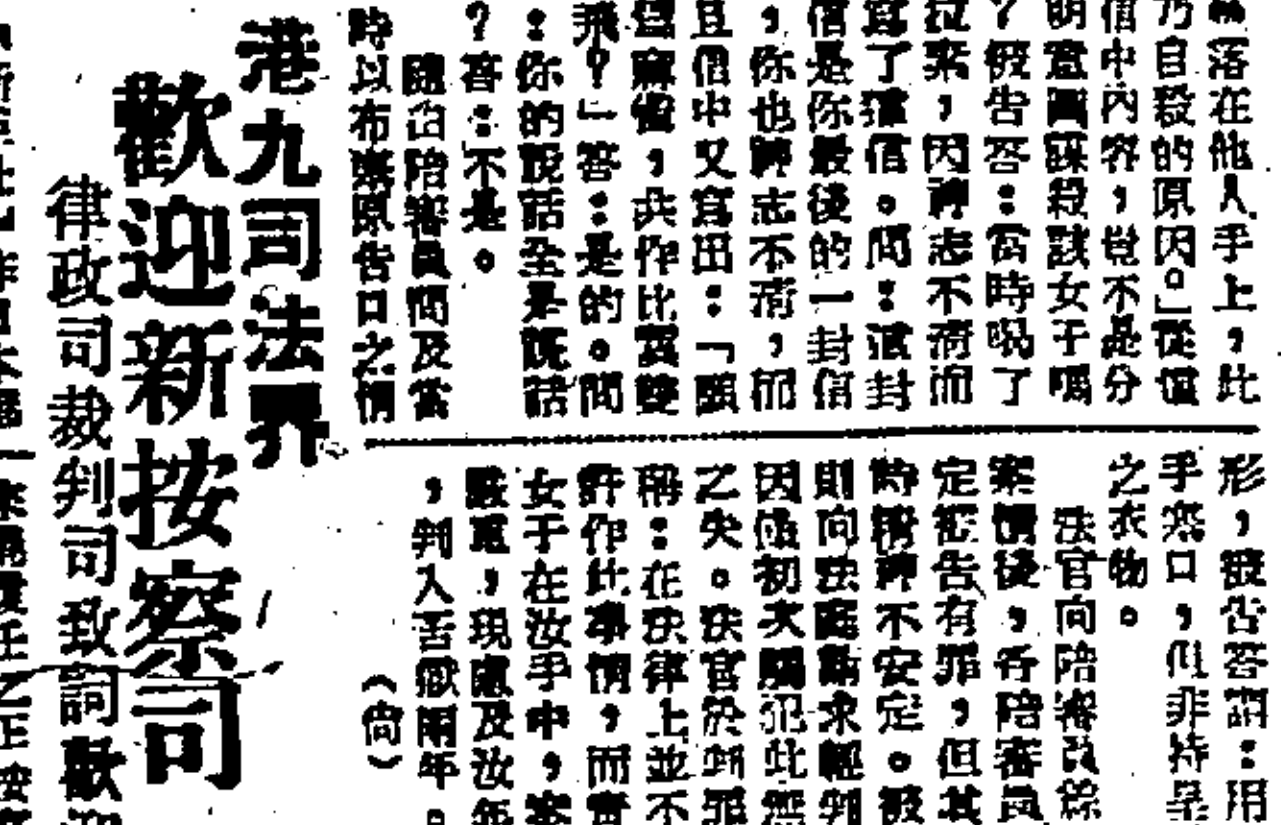 落在他人手上，此
乃自殺的原因。」從信
信中內容，豈不是分
明意圖謀殺該女子嗎
？被告答：當時喝了
拉素，因神志不清而
寫了這信。問：這封
信是你最後的一封信
，你也神志不清，而
且信中又寫出：「願
為寃魂，共作比翼雙
飛？」答：是的。問
：你的說話全是謊話
？答：不是。
隨由陪審員問及當
時以布塞原告口之情
形，被告答謂：用
手塞口，但非持
之衣物。
法官向陪審員綜
案情後，各陪審員
定被告有罪，但其
時精神不安定。被
則向法庭請求輕判
因係初次觸犯此無
之失。法官於判罪
稱：在法律上並不
許作此事情，而實
女子在汝手中，案
嚴重，現處及汝年
，判入苦獄兩年。
（尙）
港九司法界
歡迎新按察司
律政司裁判司致詞歡迎